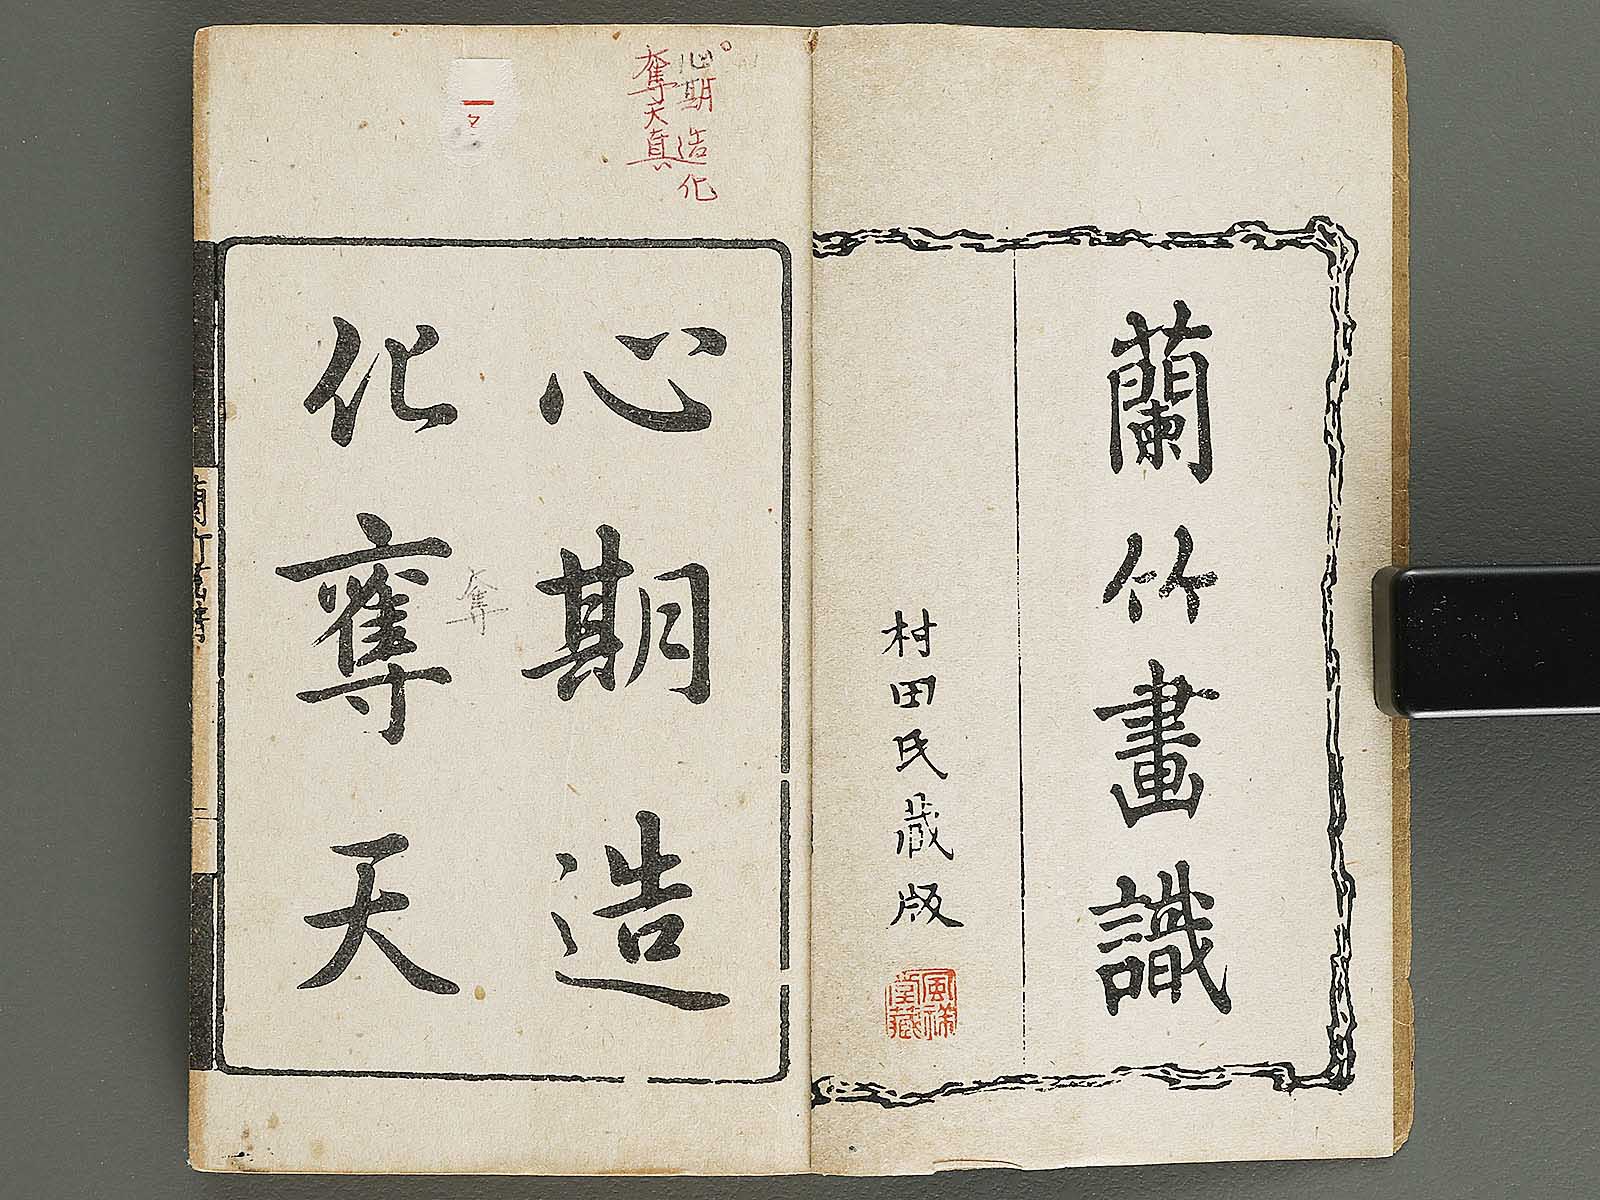 蘭竹畫識
村田氏蔵版
心期造
化奪天
心期造化
奪天真
奪
一